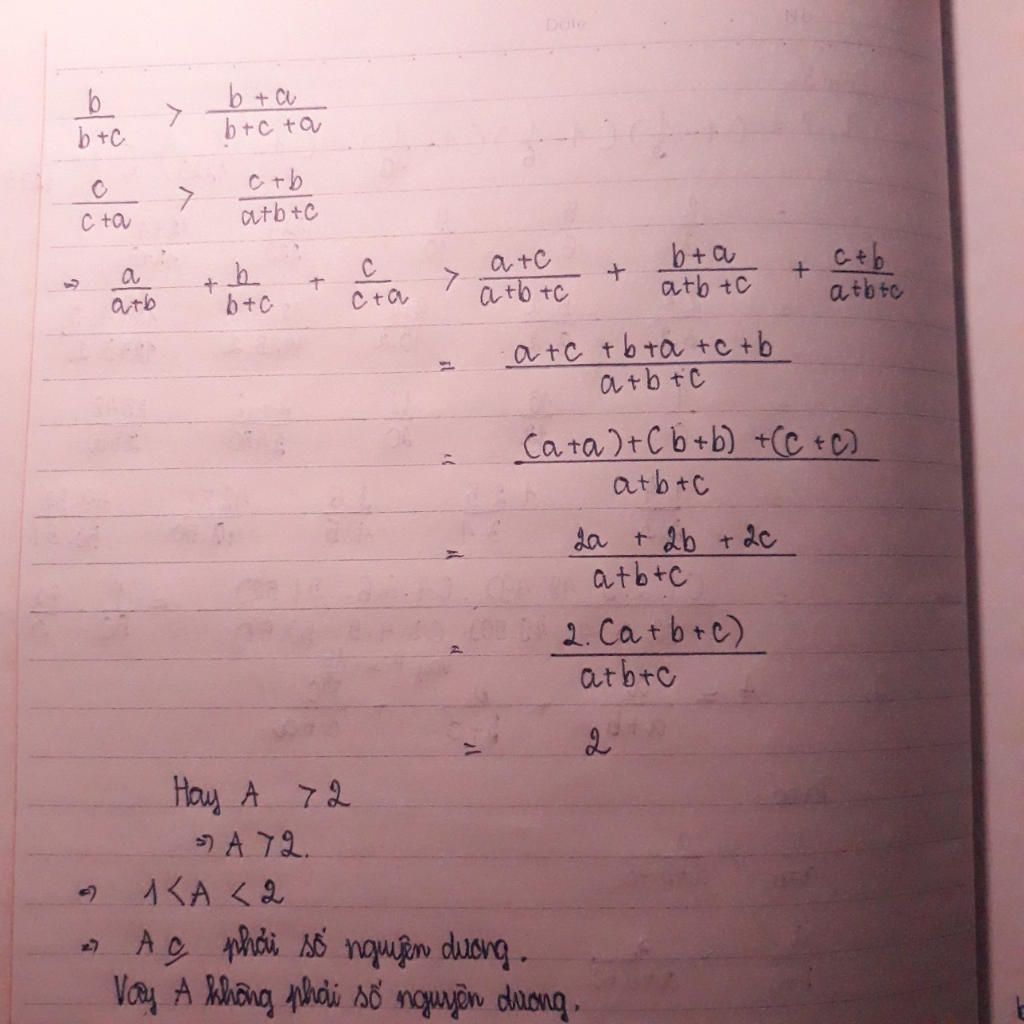 Date No
b/(b+c) > (b+a)/(b+c+a)
c/(c+a) > (c+b)/(a+b+c)
⇒ a/(a+b) + b/(b+c) + c/(c+a) > (a+c)/(a+b+c) + (b+a)/(a+b+c) + (c+b)/(a+b+c)
= (a+c+b+a+c+b)/(a+b+c)
= ((a+a)+(b+b)+(c+c))/(a+b+c)
= (2a + 2b + 2c)/(a+b+c)
= 2.(a+b+c)/(a+b+c)
= 2
Hay A > 2
⇒ A > 2.
⇒ 1 < A < 2
⇒ A c phải số nguyên dương.
Vậy A không phải số nguyên dương.